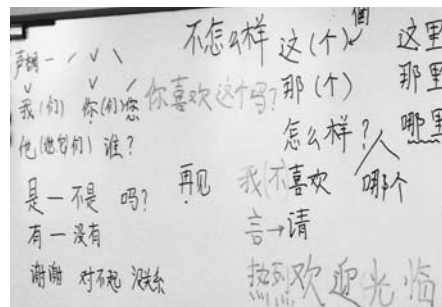 不怎么样 这(个) 個 这里
声调 一 ˊ ˇ ˋ
我(们) 你(们)您 你喜欢这个吗? 那(个) 那里
他(她它们) 谁? 怎么样? 哪里
是一不是 吗? 再见 我(不)喜欢 哪个
有一没有 言→请
谢谢 对不起 没关系 热烈欢迎光临